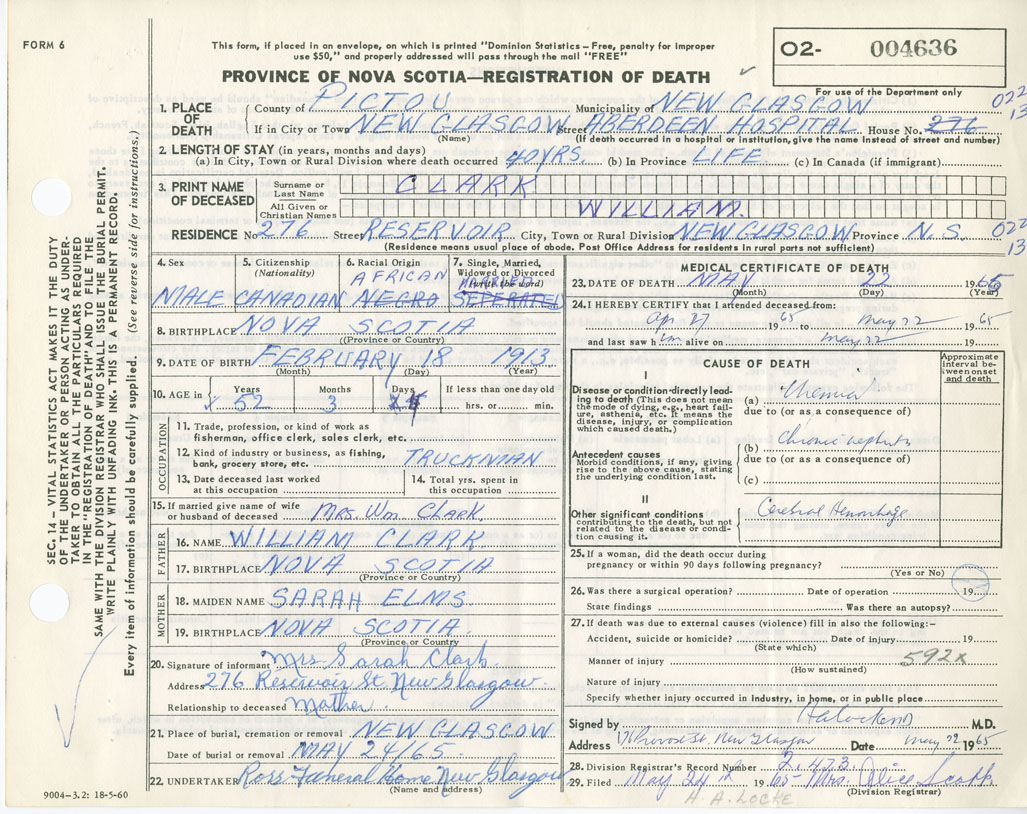 FORM 6
This form, if placed in an envelope, on which is printed "Dominion Statistics – Free, penalty for improper
use $50," and properly addressed will pass through the mail "FREE"
O2- 004636
For use of the Department only
PROVINCE OF NOVA SCOTIA—REGISTRATION OF DEATH
SEC. 14 – VITAL STATISTICS ACT MAKES IT THE DUTY
OF THE UNDERTAKER OR PERSON ACTING AS UNDER-
TAKER TO OBTAIN ALL THE PARTICULARS REQUIRED
IN THE "REGISTRATION OF DEATH" AND TO FILE THE
SAME WITH THE DIVISION REGISTRAR WHO SHALL ISSUE THE BURIAL PERMIT.
WRITE PLAINLY WITH UNFADING INK. THIS IS A PERMANENT RECORD.
Every item of information should be carefully supplied. (See reverse side for instructions.)
1. PLACE OF DEATH
County of PICTOU Municipality of NEW GLASGOW 022
13
If in City or Town NEW GLASGOW Street ABERDEEN HOSPITAL House No. 276
(Name) (If death occurred in a hospital or institution, give the name instead of street and number)
2. LENGTH OF STAY (in years, months and days)
(a) In City, Town or Rural Division where death occurred 40YRS. (b) In Province LIFE (c) In Canada (if immigrant)
3. PRINT NAME OF DECEASED
Surname or Last Name CLARK
All Given or Christian Names WILLIAM.
RESIDENCE No 276 Street RESERVOIR. City, Town or Rural Division NEW GLASGOW Province N.S. 022
13
(Residence means usual place of abode. Post Office Address for residents in rural parts not sufficient)
4. Sex
MALE
5. Citizenship
(Nationality)
CANADIAN
6. Racial Origin
AFRICAN
NEGRO
7. Single, Married,
Widowed or Divorced
(Write the word)
MARRIED
SEPERATED
8. BIRTHPLACE NOVA SCOTIA
(Province or Country)
9. DATE OF BIRTH FEBRUARY 18 1913
(Month) (Day) (Year)
10. AGE in Years Months Days If less than one day old
52 3 4 hrs. or min.
OCCUPATION
11. Trade, profession, or kind of work as
fisherman, office clerk, sales clerk, etc.
12. Kind of industry or business, as fishing,
bank, grocery store, etc. TRUCKMAN
13. Date deceased last worked
at this occupation
14. Total yrs. spent in
this occupation
15. If married give name of wife
or husband of deceased MRS. WM. CLARK.
FATHER
16. NAME WILLIAM CLARK
17. BIRTHPLACE NOVA SCOTIA
(Province or Country)
MOTHER
18. MAIDEN NAME SARAH ELMS
19. BIRTHPLACE NOVA SCOTIA
(Province or Country)
20. Signature of informant Mrs. Sarah Clark.
Address 276 Reservoir St. New Glasgow.
Relationship to deceased Mother.
21. Place of burial, cremation or removal NEW GLASGOW
Date of burial or removal MAY 24/65.
22. UNDERTAKER Ross Funeral Home New Glasgow
(Name and address)
9004-3.2: 18-5-60
MEDICAL CERTIFICATE OF DEATH
23. DATE OF DEATH MAY 22 1965
(Month) (Day) (Year)
24. I HEREBY CERTIFY that I attended deceased from:
Apr 27 1965 to May 22 1965
and last saw him alive on May 22 19
CAUSE OF DEATH
Approximate interval between onset and death
I
Disease or condition directly lead-
ing to death (This does not mean
the mode of dying, e.g., heart fail-
ure, asthenia, etc. It means the
disease, injury, or complication
which caused death.)
(a) Uremia
due to (or as a consequence of)
Antecedent causes
Morbid conditions, if any, giving
rise to the above cause, stating
the underlying condition last.
(b) Chronic nephritis
due to (or as a consequence of)
(c)
II
Other significant conditions
contributing to the death, but not
related to the disease or condi-
tion causing it.
Cerebral Hemorrhage
25. If a woman, did the death occur during
pregnancy or within 90 days following pregnancy?
(Yes or No)
26. Was there a surgical operation? Date of operation 19
State findings Was there an autopsy?
27. If death was due to external causes (violence) fill in also the following:–
Accident, suicide or homicide? Date of injury 19
(State which)
Manner of injury 592x
(How sustained)
Nature of injury
Specify whether injury occurred in industry, in home, or in public place
Signed by M.D.
Address Provost St. New Glasgow Date May 22 1965
28. Division Registrar's Record Number 2473.
29. Filed May 24th 1965 Mrs. Alice Scott
(Division Registrar)
H. A. LOCKE